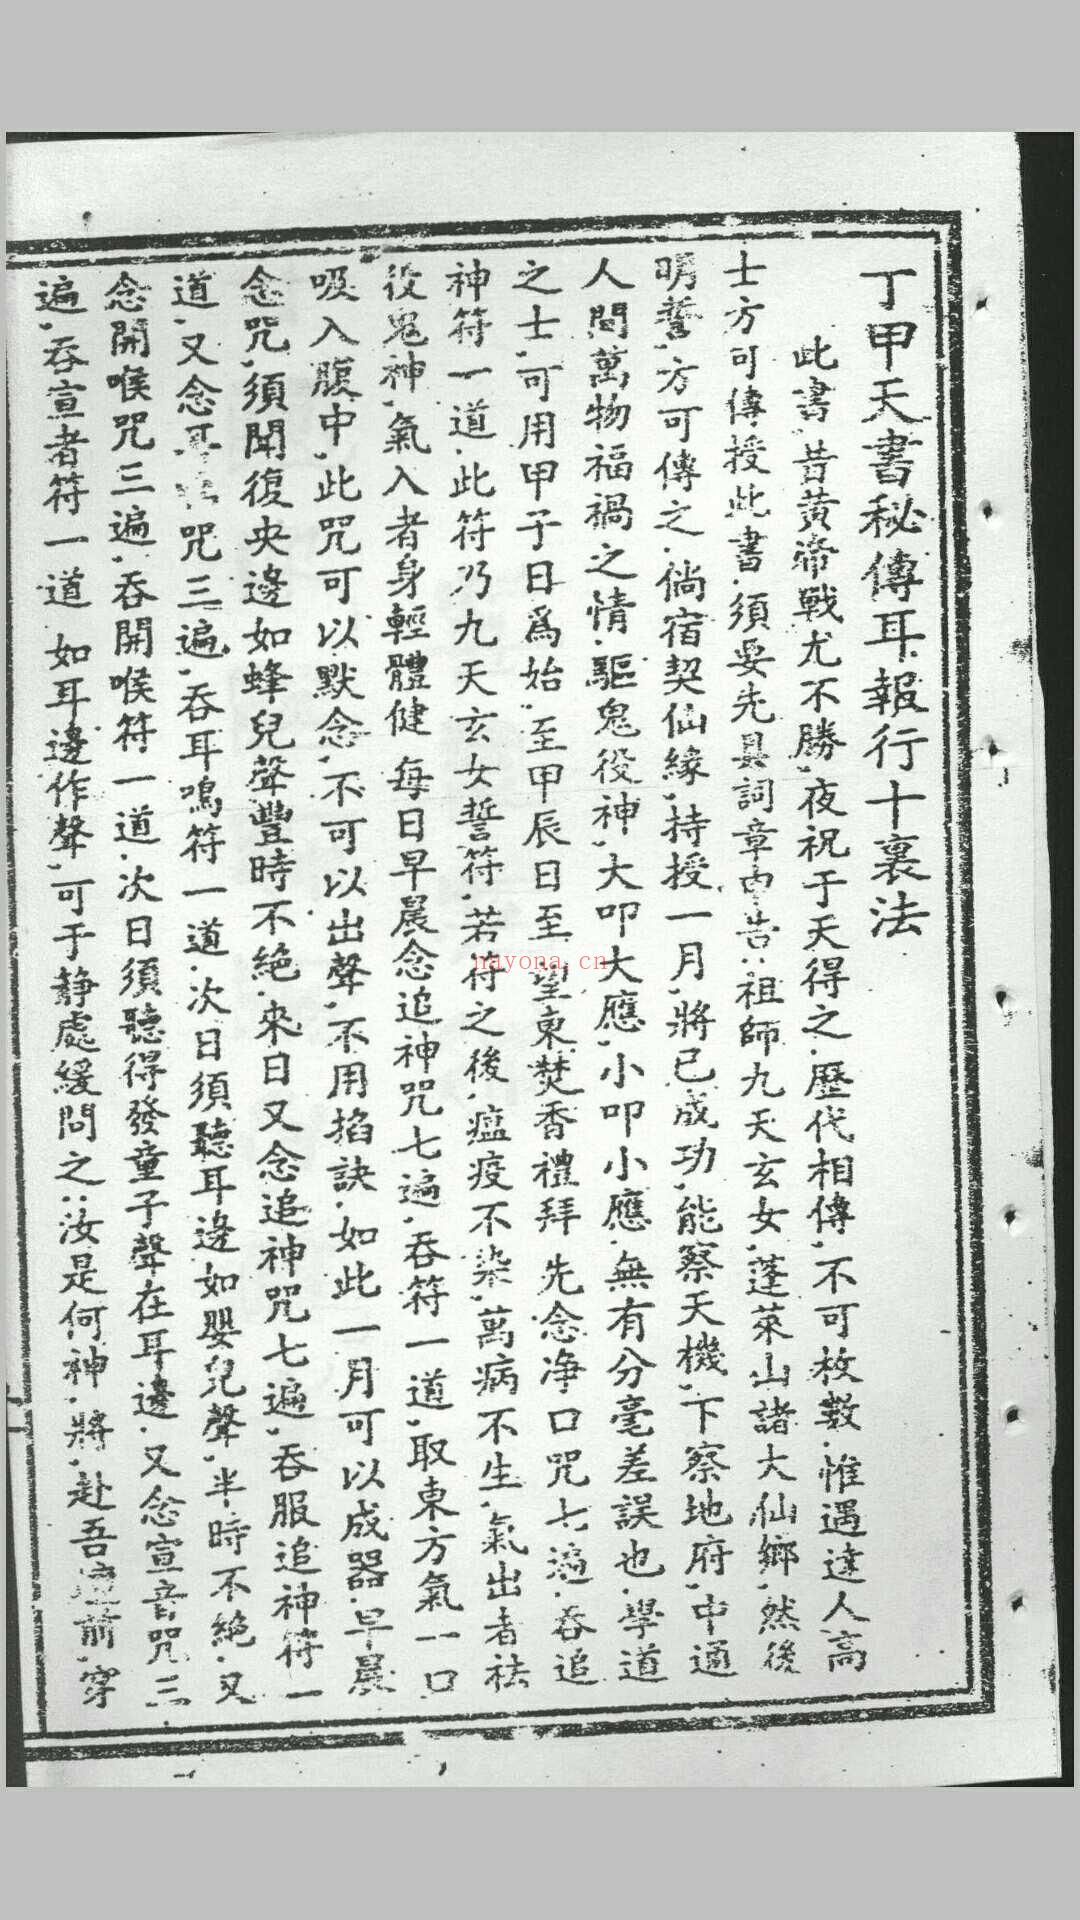 丁甲天書秘傳耳報行十裏法
此書昔黃帝戰尤不勝夜祝于天得之歷代相傳不可枚數惟遇達人高
士方可傳授此書須要先具詞章申告祖師九天玄女蓬萊山諸大仙鄉然後
明誓方可傳之倘宿契仙緣持授一月將已成功能察天機下察地府中通
人間萬物福禍之情驅鬼役神大叩大應小叩小應無有分毫差誤也學道
之士可用甲子日爲始至甲辰日至望東焚香禮拜先念净口咒七遍吞追
神符一道此符乃九天玄女誓符若符之後瘟疫不染萬病不生氣出者祛
役鬼神氣入者身輕體健每日早晨念追神咒七遍吞符一道取東方氣一口
吸入腹中此咒可以默念不可以出聲不用掐訣如此一月可以成器早晨
念咒須聞復央邊如蜂兒聲豐時不絕來日又念追神咒七遍吞服追神符一
道又念耳咒三遍吞耳鳴符一道次日須聽耳邊如嬰兒聲半時不絕又
念開喉咒三遍吞開喉符一道次日須聽得發童子聲在耳邊又念宣音咒三
遍吞宣者符一道如耳邊作聲可于静處緩問之汝是何神將赴吾壇前穿
nayona.cn